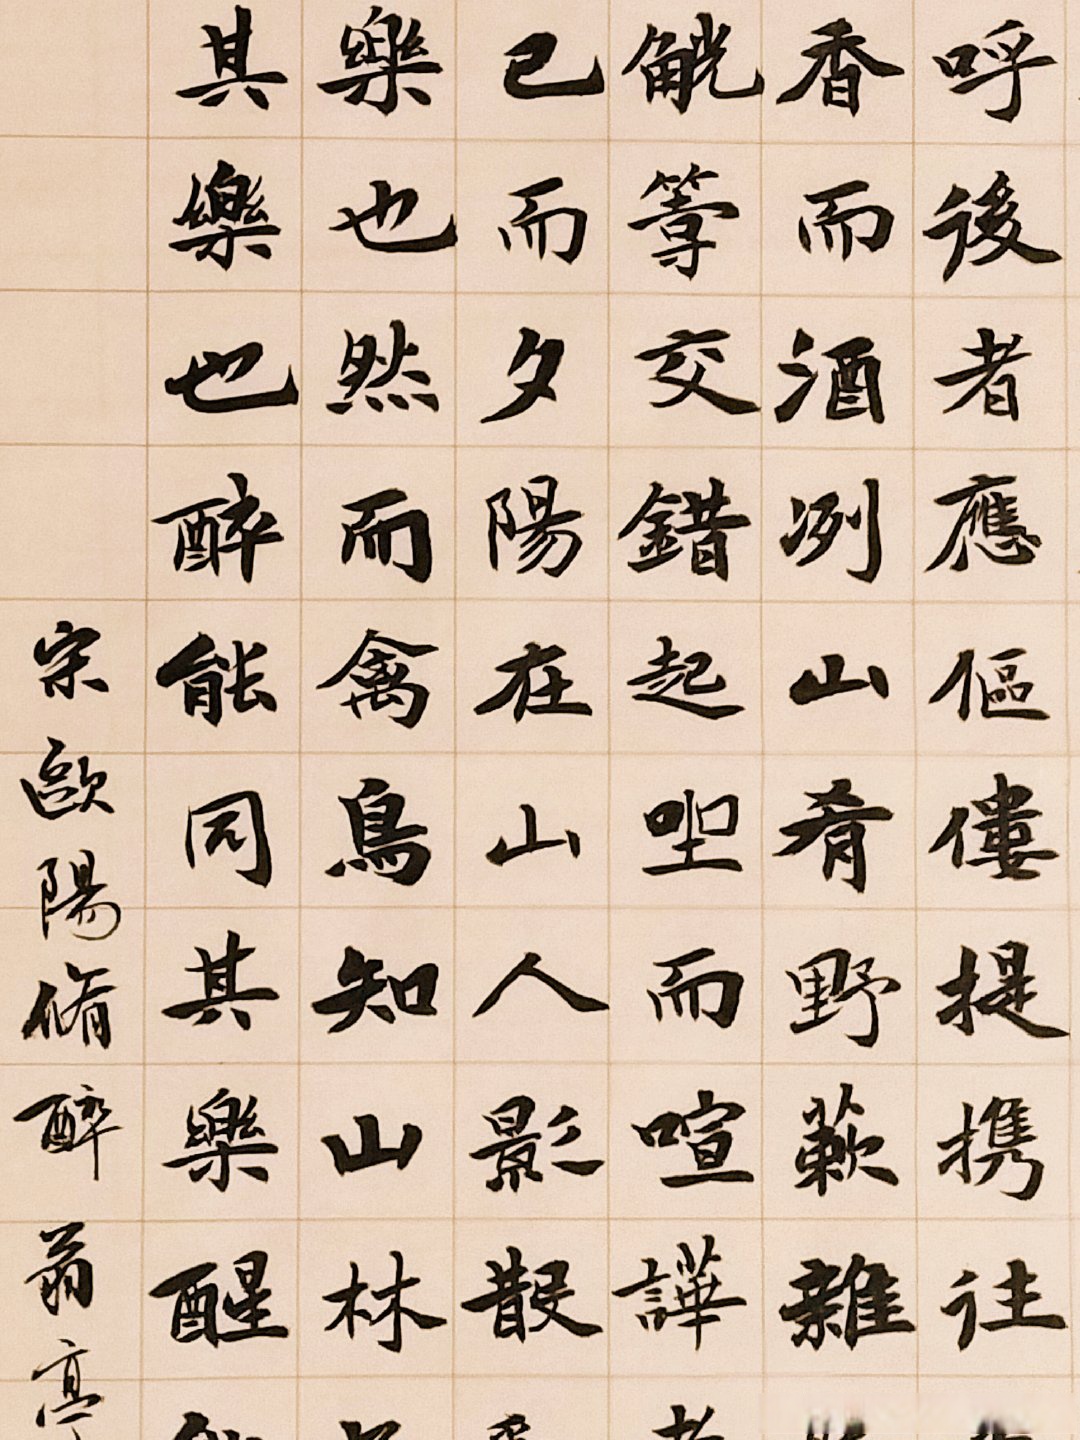 呼後者應傴僂提携往
香而酒冽山肴野蔌雜
觥籌交錯起坐而喧譁
已而夕陽在山人影散
樂也然而禽鳥知山林
其樂也醉能同其樂醒
宋歐陽脩醉翁亭